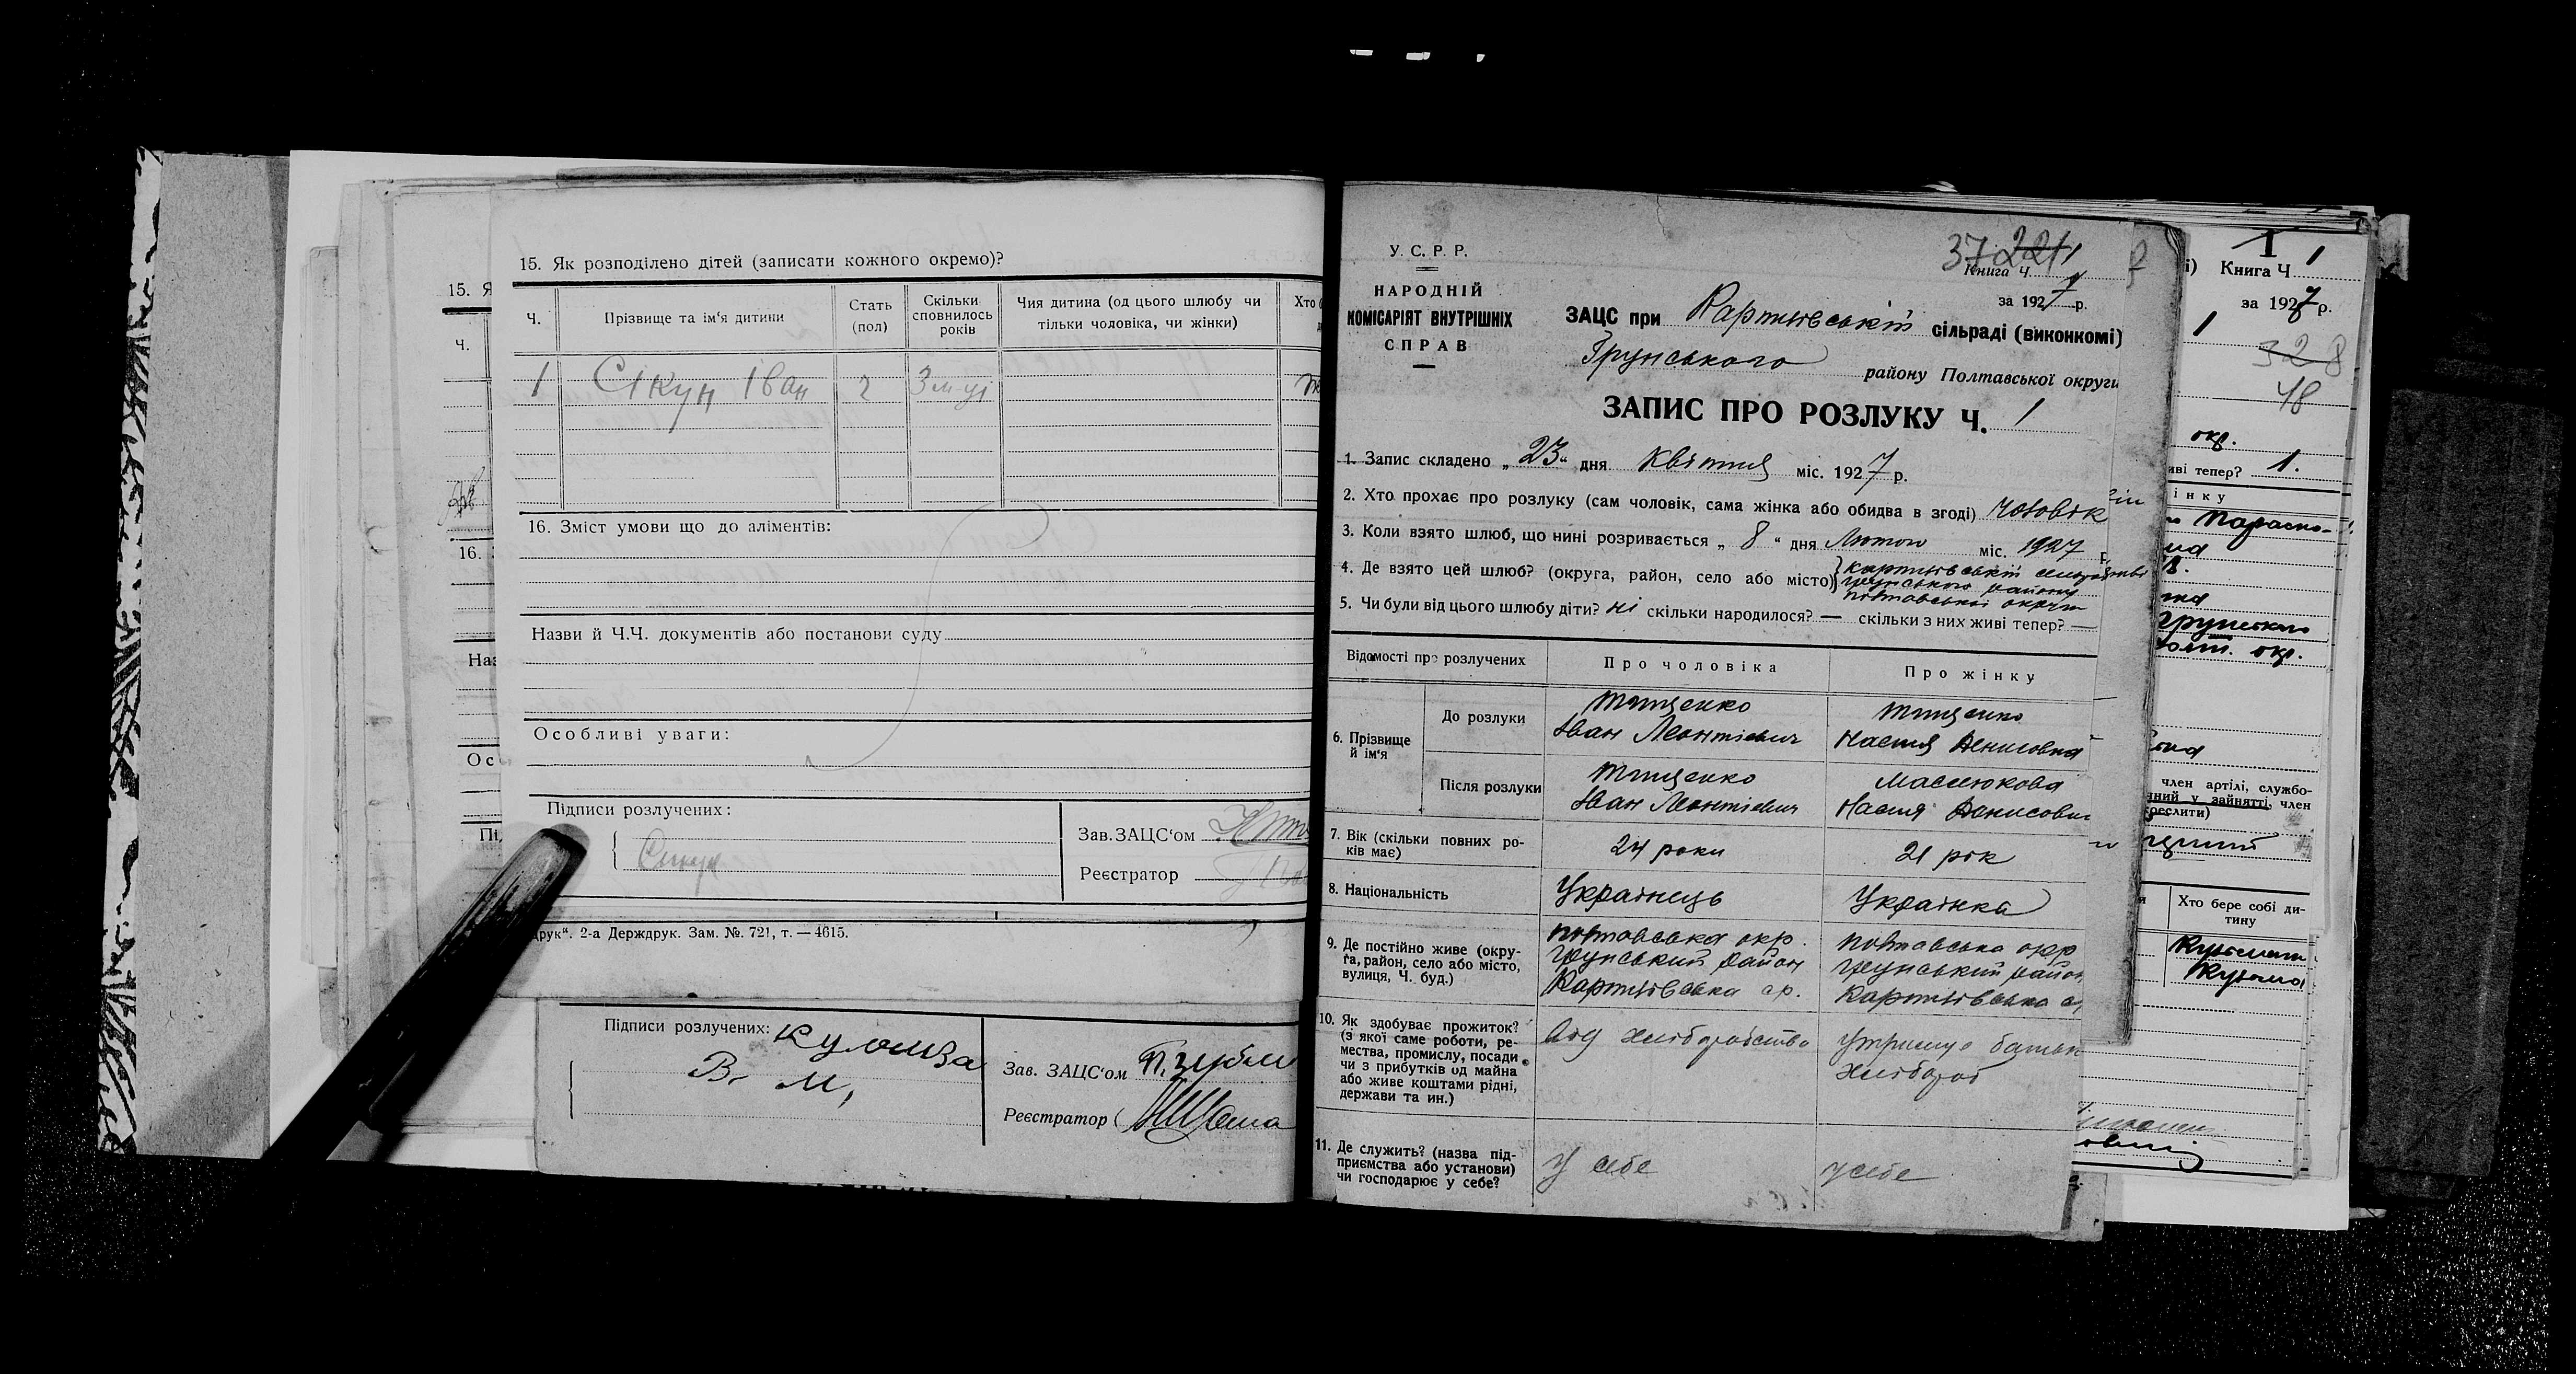 15. Як розподілено дітей (записати кожного окремо)?
Ч.
Прізвище та ім'я дитини
Стать (пол)
Скільки сповнилось років
Чия дитина (од цього шлюбу чи тільки чоловіка, чи жінки)
1 Сікун Іван 2 3 м-ці
16. Зміст умови що до аліментів:
Назви й Ч.Ч. документів або постанови суду
Особливі уваги:
Підписи розлучених:
Зав. ЗАЦС'ом
Реєстратор
друк". 2-а Держдрук. Зам. №. 721, т. — 4615.
Підписи розлучених:
В. М,
Зав. ЗАЦС'ом
Реєстратор
15. Я
Ч.
16.
У. С. Р. Р.
НАРОДНІЙ
КОМІСАРІЯТ ВНУТРІШНІХ
СПРАВ
37 221
Книга Ч. 1
за 1927 р.
ЗАЦС при Картишівській сільраді (виконкомі)
Грунського
району Полтавської округи
ЗАПИС ПРО РОЗЛУКУ Ч. 1
1. Запис складено „23" дня Квітня міс. 1927 р.
2. Хто прохає про розлуку (сам чоловік, сама жінка або обидва в згоді) Чоловік
3. Коли взято шлюб, що нині розривається „8" дня Лютого міс. 1927 р.
4. Де взято цей шлюб? (округа, район, село або місто)
грунського району
полтавської округи
5. Чи були від цього шлюбу діти? ні скільки народилося? — скільки з них живі тепер? —
Відомості про розлучених
Про чоловіка
Про жінку
6. Прізвище й ім'я
До розлуки
Тищенко
Іван Леонтієвич
Тищенко
Настя Денисовна
Після розлуки
Тищенко
Іван Леонтієвич
Маслюкова
Настя Денисовна
7. Вік (скільки повних ро-
ків має)
24 роки
21 рік
8. Національність
Українець
Українка
9. Де постійно живе (окру-
га, район, село або місто,
вулиця, Ч. буд.)
полтавська окр.
грунський район
Картишівська ср.
полтавська окр
грунський район
Картишівська с
10. Як здобуває прожиток?
(з якої саме роботи, ре-
мества, промислу, посади
чи з прибутків од майна
або живе коштами рідні,
держави та ин.)
від хліборобства
утримує батьк
хлібороб
11. Де служить? (назва під-
приємства або установи)
чи господарює у себе?
у себе
у себе
1
Книга Ч. 1
за 1927 р.
1
328
48
окр.
иві тепер? 1.
інку
окр.
член артілі, службо-
ний у зайнятті, член
реслити)
Хто бере собі ди-
тину